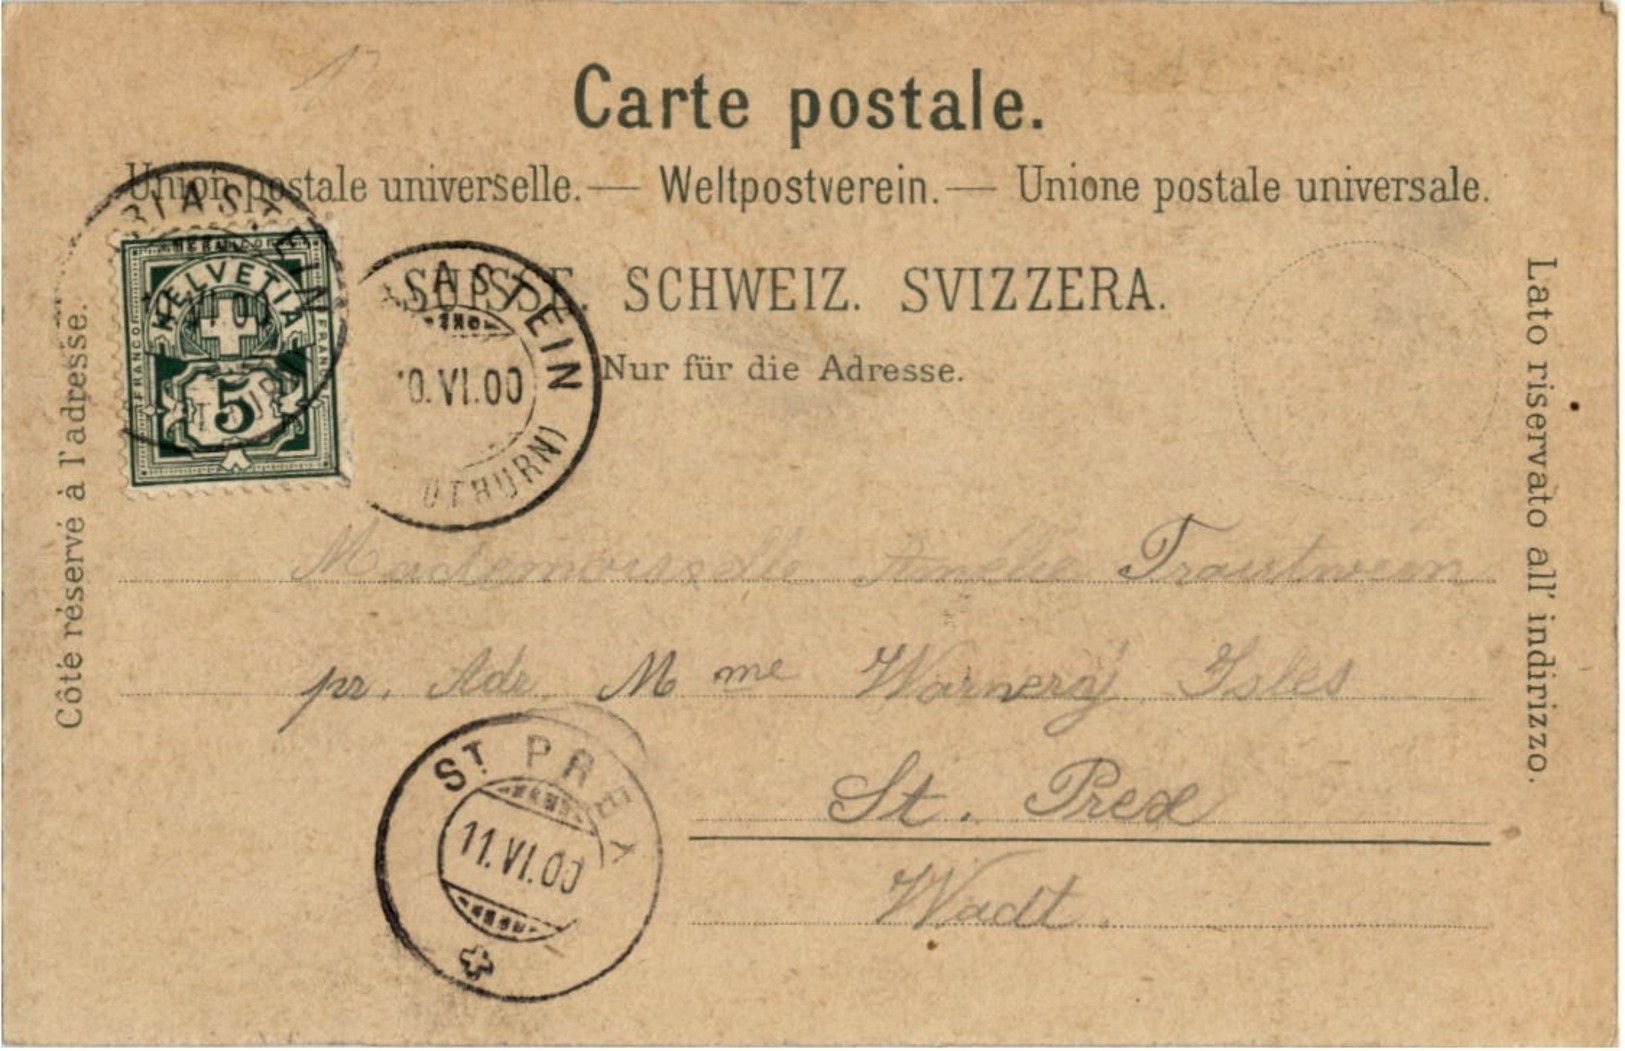 Carte postale.
Union postale universelle. — Weltpostverein. — Unione postale universale.
SUISSE. SCHWEIZ. SVIZZERA.
Nur für die Adresse.
Côté réservé à l'adresse.
Lato riservato all' indirizzo.
HELVETIA
FRANCO
5
VI.00
ASTEIN
0.VI.00
Mademoiselle Amélie Trautwein
pr. Adr. Mme Warnery Isles
St. Prex
Wadt.
ST. PREX
11.VI.00